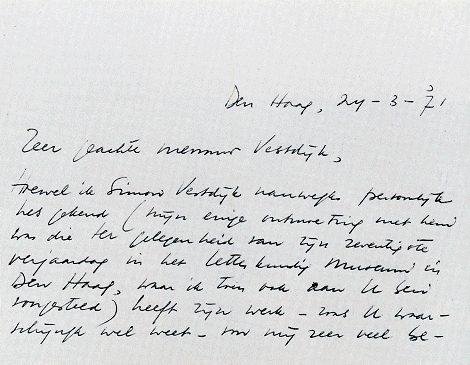 Den Haag, 24-3-71
Zeer geachte mevrouw Vestdijk,
Hoewel ik Simon Vestdijk nauwelijks persoonlijk
heb gekend (mijn enige ontmoeting met hem
was die ter gelegenheid van zijn zeventigste
verjaardag in het Letterkundig Museum in
Den Haag, waar ik toen ook aan U ben
voorgesteld) heeft zijn werk - zoals U waar-
schijnlijk wel weet - voor mij zeer veel be-